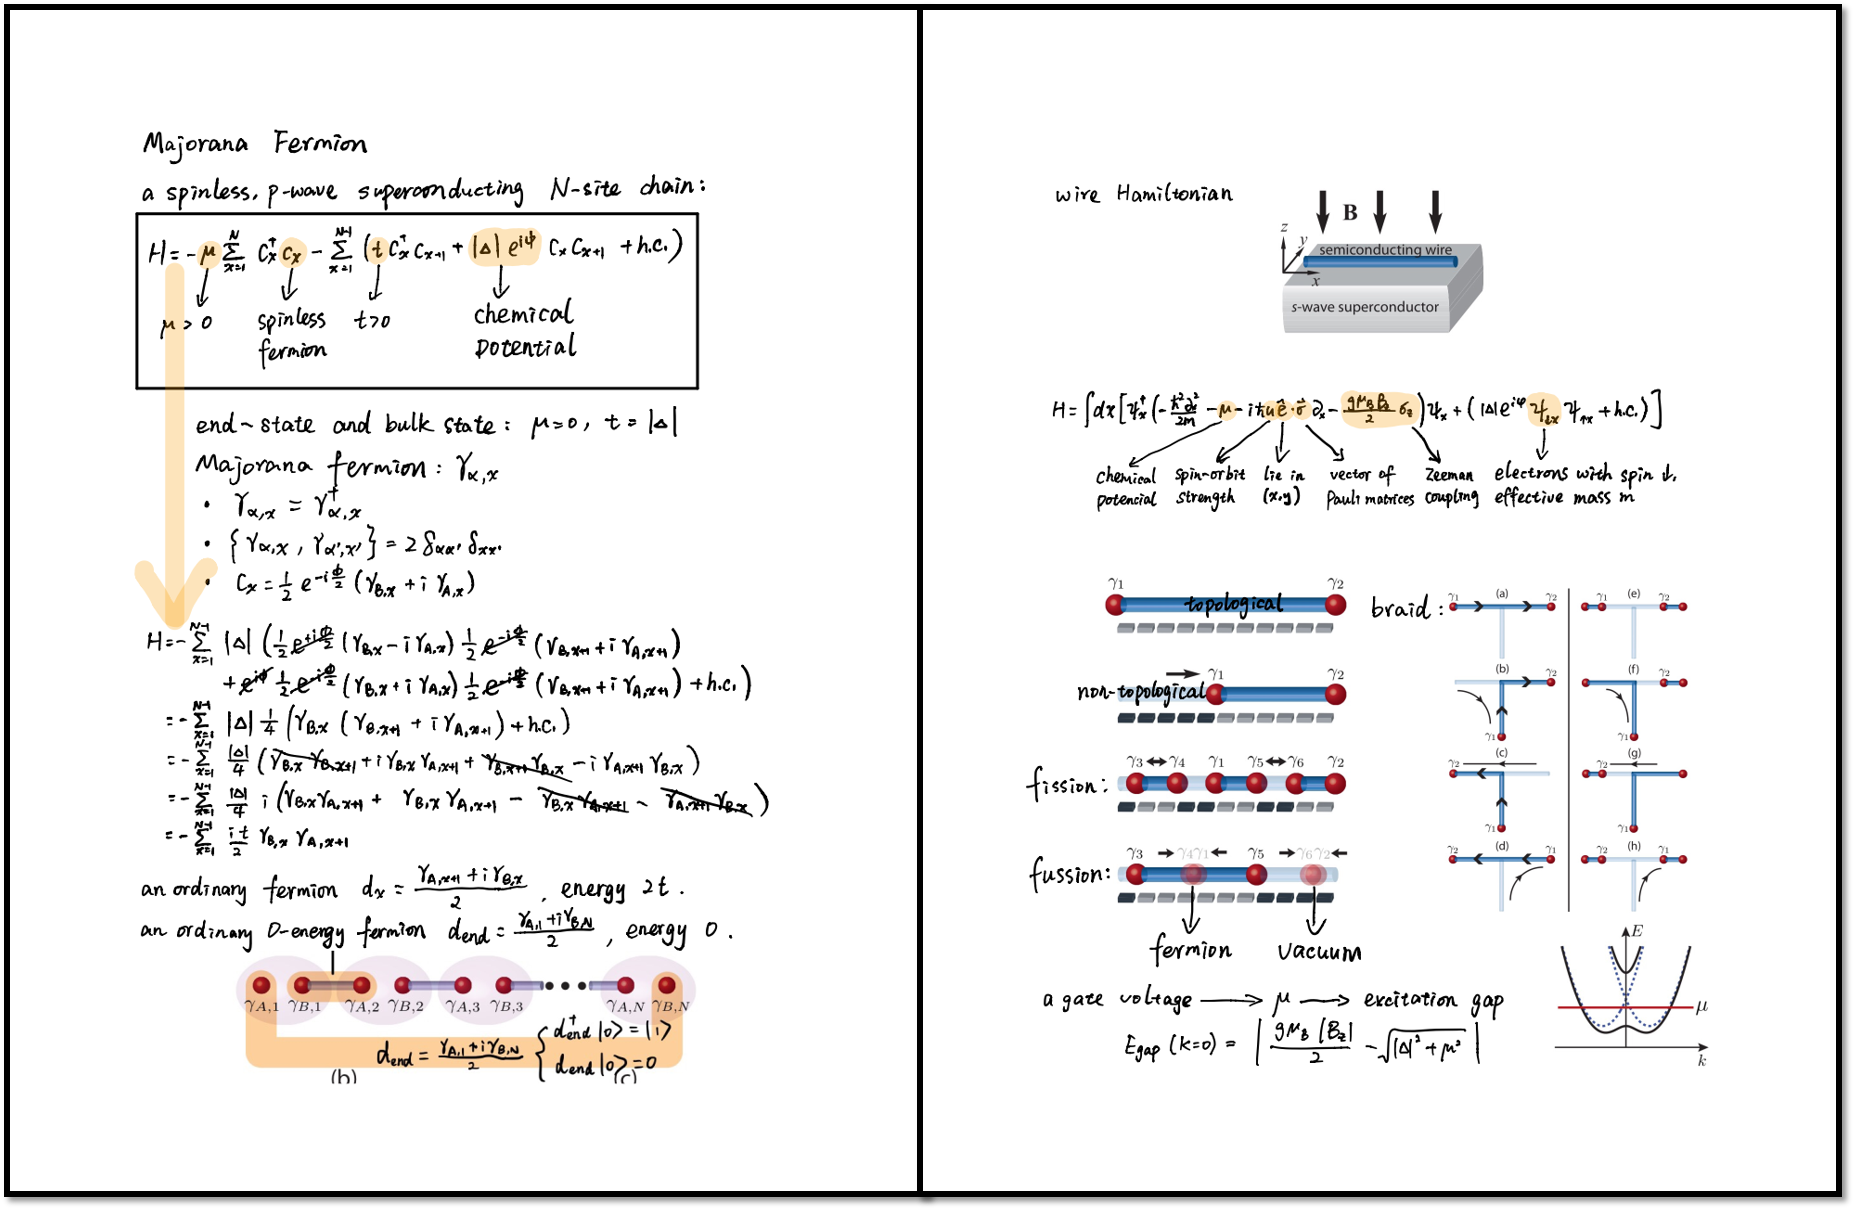 Majorana Fermion
a spinless, p-wave superconducting N-site chain:
H = -μ Σ_{x=1}^{N} C_x^† C_x - Σ_{x=1}^{N-1} (t C_x^† C_{x+1} + |Δ| e^{iφ} C_x C_{x+1} + h.c.)
μ > 0 spinless fermion t>0 chemical potential
end-state and bulk state: μ=0, t = |Δ|
Majorana fermion: γ_{α,x}
• γ_{α,x} = γ^†_{α,x}
• {γ_{α,x}, γ_{α',x'}} = 2 δ_{αα'} δ_{xx'}
• C_x = 1/2 e^{-iφ/2} (γ_{B,x} + i γ_{A,x})
H = -Σ_{x=1}^{N-1} |Δ| (1/2 e^{+iφ/2} (γ_{B,x} - i γ_{A,x}) 1/2 e^{-iφ/2} (γ_{B,x+1} + i γ_{A,x+1})
+ e^{iφ} 1/2 e^{-iφ/2} (γ_{B,x} + i γ_{A,x}) 1/2 e^{-iφ/2} (γ_{B,x+1} + i γ_{A,x+1}) + h.c.)
= -Σ_{x=1}^{N-1} |Δ| 1/4 (γ_{B,x} (γ_{B,x+1} + i γ_{A,x+1}) + h.c.)
= -Σ_{x=1}^{N-1} |Δ|/4 (γ_{B,x} γ_{B,x+1} + i γ_{B,x} γ_{A,x+1} + γ_{B,x+1} γ_{B,x} - i γ_{A,x+1} γ_{B,x})
= -Σ_{x=1}^{N-1} |Δ|/4 i (γ_{B,x} γ_{A,x+1} + γ_{B,x} γ_{A,x+1} - γ_{B,x} γ_{A,x+1} - γ_{A,x+1} γ_{B,x})
= -Σ_{x=1}^{N-1} it/2 γ_{B,x} γ_{A,x+1}
an ordinary fermion d_x = (γ_{A,x+1} + i γ_{B,x})/2, energy 2t.
an ordinary 0-energy fermion d_end = (γ_{A,1} + i γ_{B,N})/2, energy 0.
γ_{A,1} γ_{B,1} γ_{A,2} γ_{B,2} γ_{A,3} γ_{B,3} γ_{A,N} γ_{B,N}
d_end = (γ_{A,1} + i γ_{B,N})/2 { d^†_end |0> = |1>
d_end |0> = 0
(b) (c)
wire Hamiltonian
B
z y x
semiconducting wire
s-wave superconductor
H = ∫dx [ψ_x^† (-ħ²∂_x²/2m - μ - iħu ê·σ⃗ ∂_x - gμ_B B_z/2 σ_z) ψ_x + (|Δ| e^{iφ} ψ_{↓x} ψ_{↑x} + h.c.)]
chemical potencial
spin-orbit strength
lie in (x,y)
vector of Pauli matrices
Zeeman coupling
electrons with spin ↓, effective mass m
γ1 γ2
topological
γ1 γ2
non-topological
fission: γ3 γ4 γ1 γ5 γ6 γ2
fussion: γ3 γ4 γ1 γ5 γ6 γ2
fermion vacuum
braid:
γ1 (a) γ2 γ1 (e) γ2
(b) γ2 γ1 (f) γ2 γ1
γ2 (c) γ1 γ2 (g) γ1
γ2 (d) γ1 γ2 (h) γ1
a gate voltage ⟶ μ ⟶ excitation gap
E_gap (k=0) = | gμ_B |B_z|/2 - √(|Δ|² + μ²) |
E
μ
k